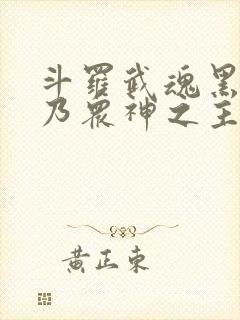 斗羅武魂黑
乃眾神之主
黃正東